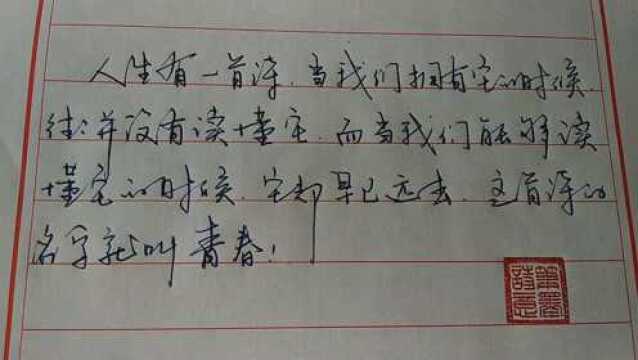 人生有一首诗，当我们拥有它的时候，
往往并没有读懂它，而当我们能够读
懂它的时候，它却早已远去，这首诗的
名字就叫青春！
笔墨
诗意